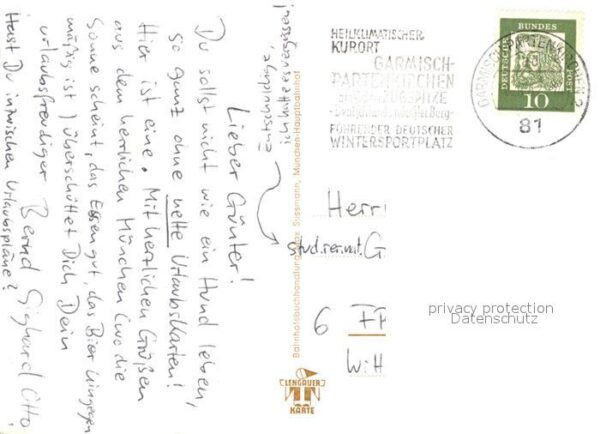 Lieber Günter!
Du sollst nicht wie ein Hund leben,
so ganz ohne nette Urlaubskarten!
Hier ist eine. Mit herzlichen Grüßen
aus dem herrlichen München (wo die
Sonne scheint, das Essen gut, das Bier hingegen
mäßig ist) überschüttet Dich Dein
urlaubsfreudiger Bernd Sighard Otto
Hast Du inzwischen Urlaubspläne?
Entschuldige,
ich hatte es vergessen!
Bahnhofsbuchhandlung Sussmann, München-Hauptbahnhof
LENGAUER
KARTE
HEILKLIMATISCHER
KURORT
GARMISCH-
PARTENKIRCHEN
ZUGSPITZE
FÜHRENDER DEUTSCHER
WINTERSPORTPLATZ
DEUTSCHE BUNDESPOST
10
GARMISCH-PARTENKIRCHEN 2
81
Herrn
stud.rer.nat. G
6 FF
Wi H
privacy protection
Datenschutz